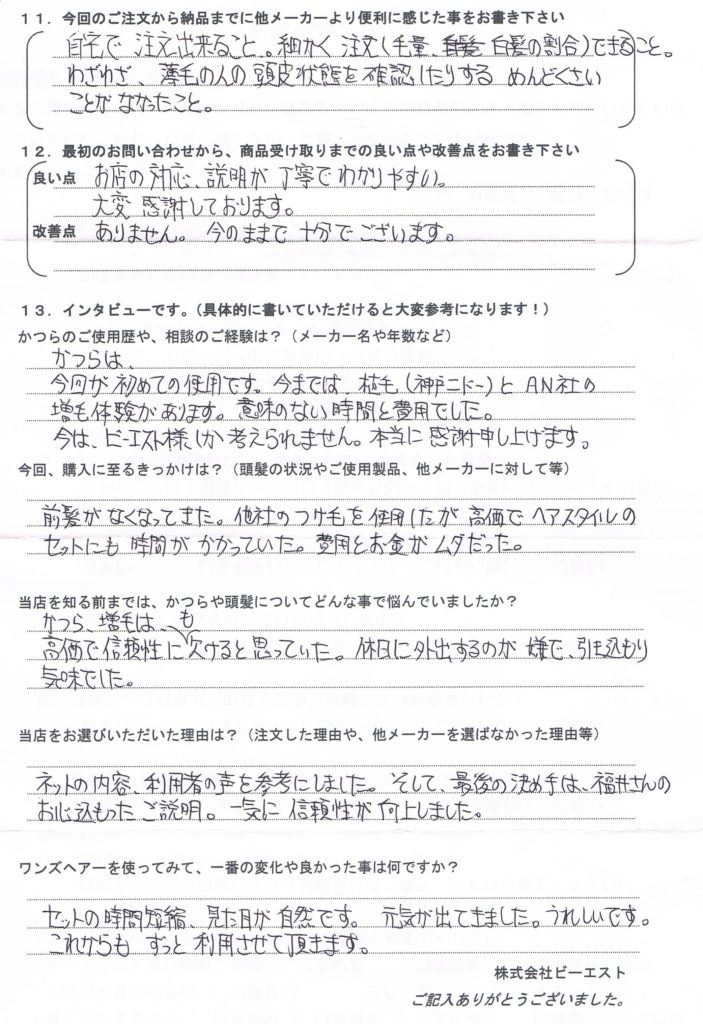 １１．今回のご注文から納品までに他メーカーより便利に感じた事をお書き下さい
自宅で注文出来ること。細かく注文(毛量、白髪の割合)できること。
わざわざ、薄毛の人の頭皮状態を確認したりするめんどくさい
ことがなかったこと。
１２．最初のお問い合わせから、商品受け取りまでの良い点や改善点をお書き下さい
良い点 お店の対応、説明が丁寧でわかりやすい。
大変感謝しております。
改善点 ありません。今のままで十分でございます。
１３．インタビューです。（具体的に書いていただけると大変参考になります！）
かつらのご使用歴や、相談のご経験は？（メーカー名や年数など）
かつらは、
今回が初めての使用です。今までは、植毛(神戸ニドー)とAN社の
増毛体験があります。意味のない時間と費用でした。
今は、ビーエスト様しか考えられません。本当に感謝申し上げます。
今回、購入に至るきっかけは？（頭髪の状況やご使用製品、他メーカーに対して等）
前髪がなくなってきた。他社のつけ毛を使用したが高価でヘアスタイルの
セットにも時間がかかっていた。費用とお金がムダだった。
当店を知る前までは、かつらや頭髪についてどんな事で悩んでいましたか？
かつら、増毛は、も
高価で信頼性に欠けると思っていた。休日に外出するのが嫌で、引き込もり
気味でした。
当店をお選びいただいた理由は？（注文した理由や、他メーカーを選ばなかった理由等）
ネットの内容、利用者の声を参考にしました。そして、最後の決め手は、福井さんの
お心込もったご説明。一気に信頼性が向上しました。
ワンズヘアーを使ってみて、一番の変化や良かった事は何ですか？
セットの時間短縮、見た目が自然です。元気が出てきました。うれしいです。
これからもずっと利用させて頂きます。
株式会社ビーエスト
ご記入ありがとうございました。